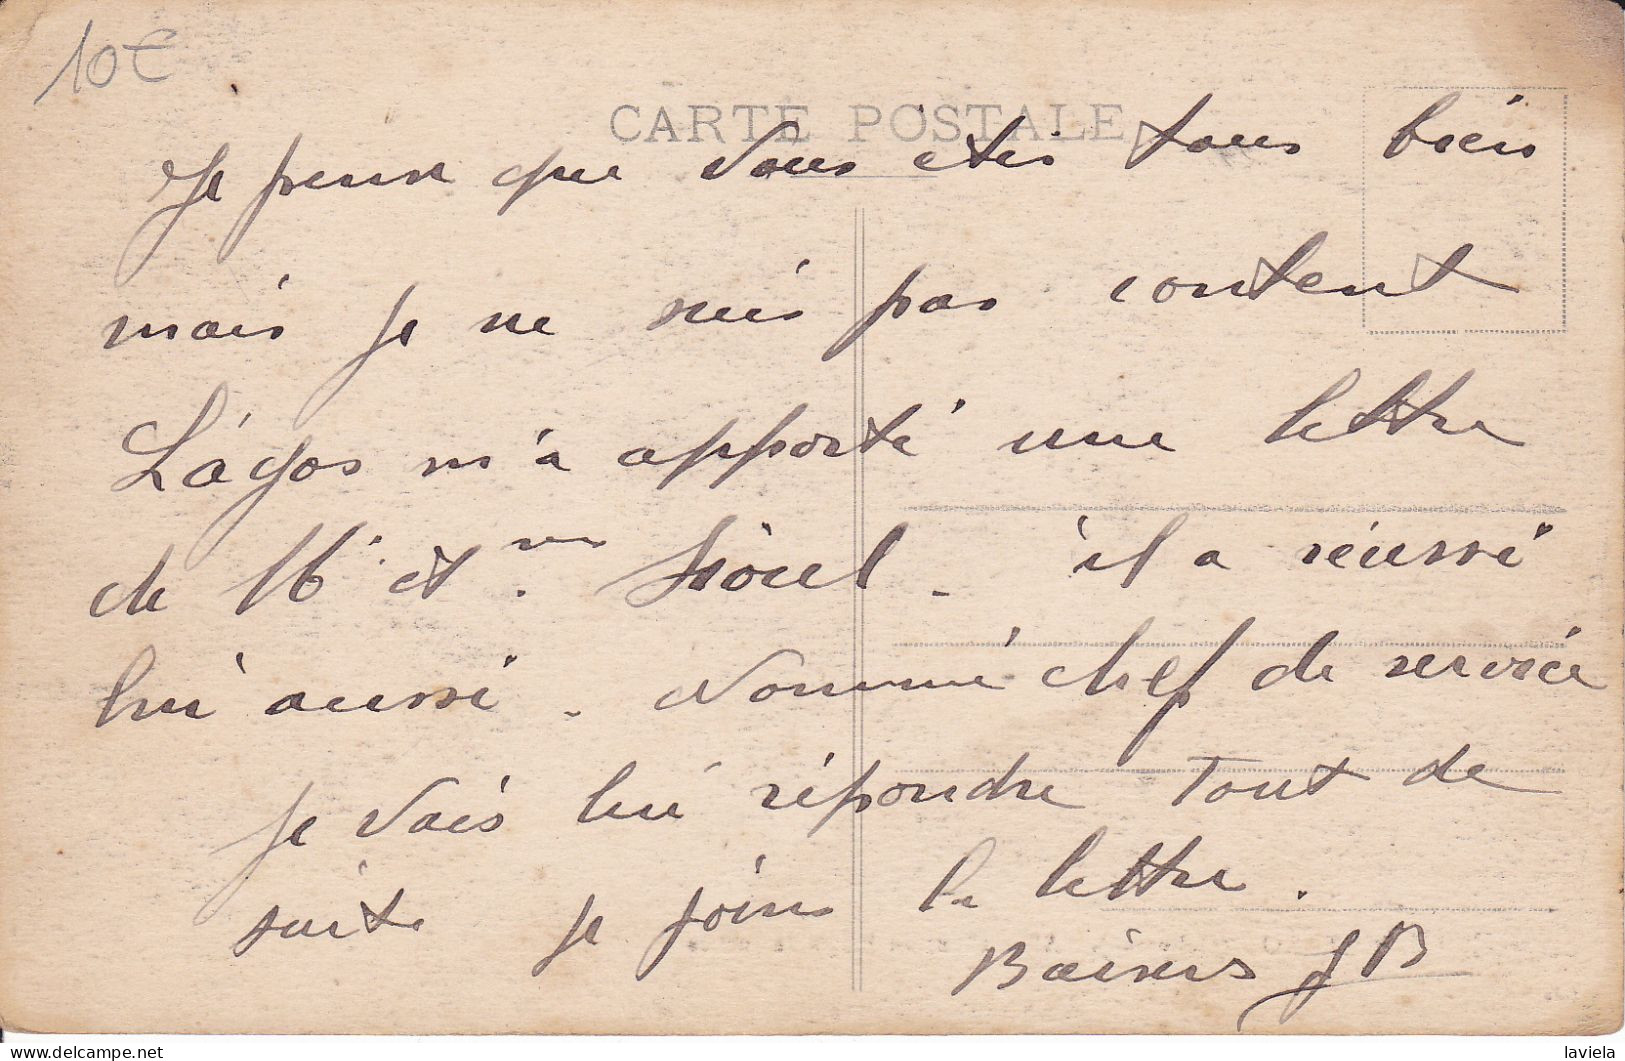 10€
CARTE POSTALE
Je pense que vous etes tous bien
mais je ne suis pas content
Lagos m'a apporté une lettre
de Mr et me il a réussi
lui aussi. Nommé chef de service
je vais lui répondre tout de
suite je joins la lettre.
Baisers JB
delcampe.net
laviela